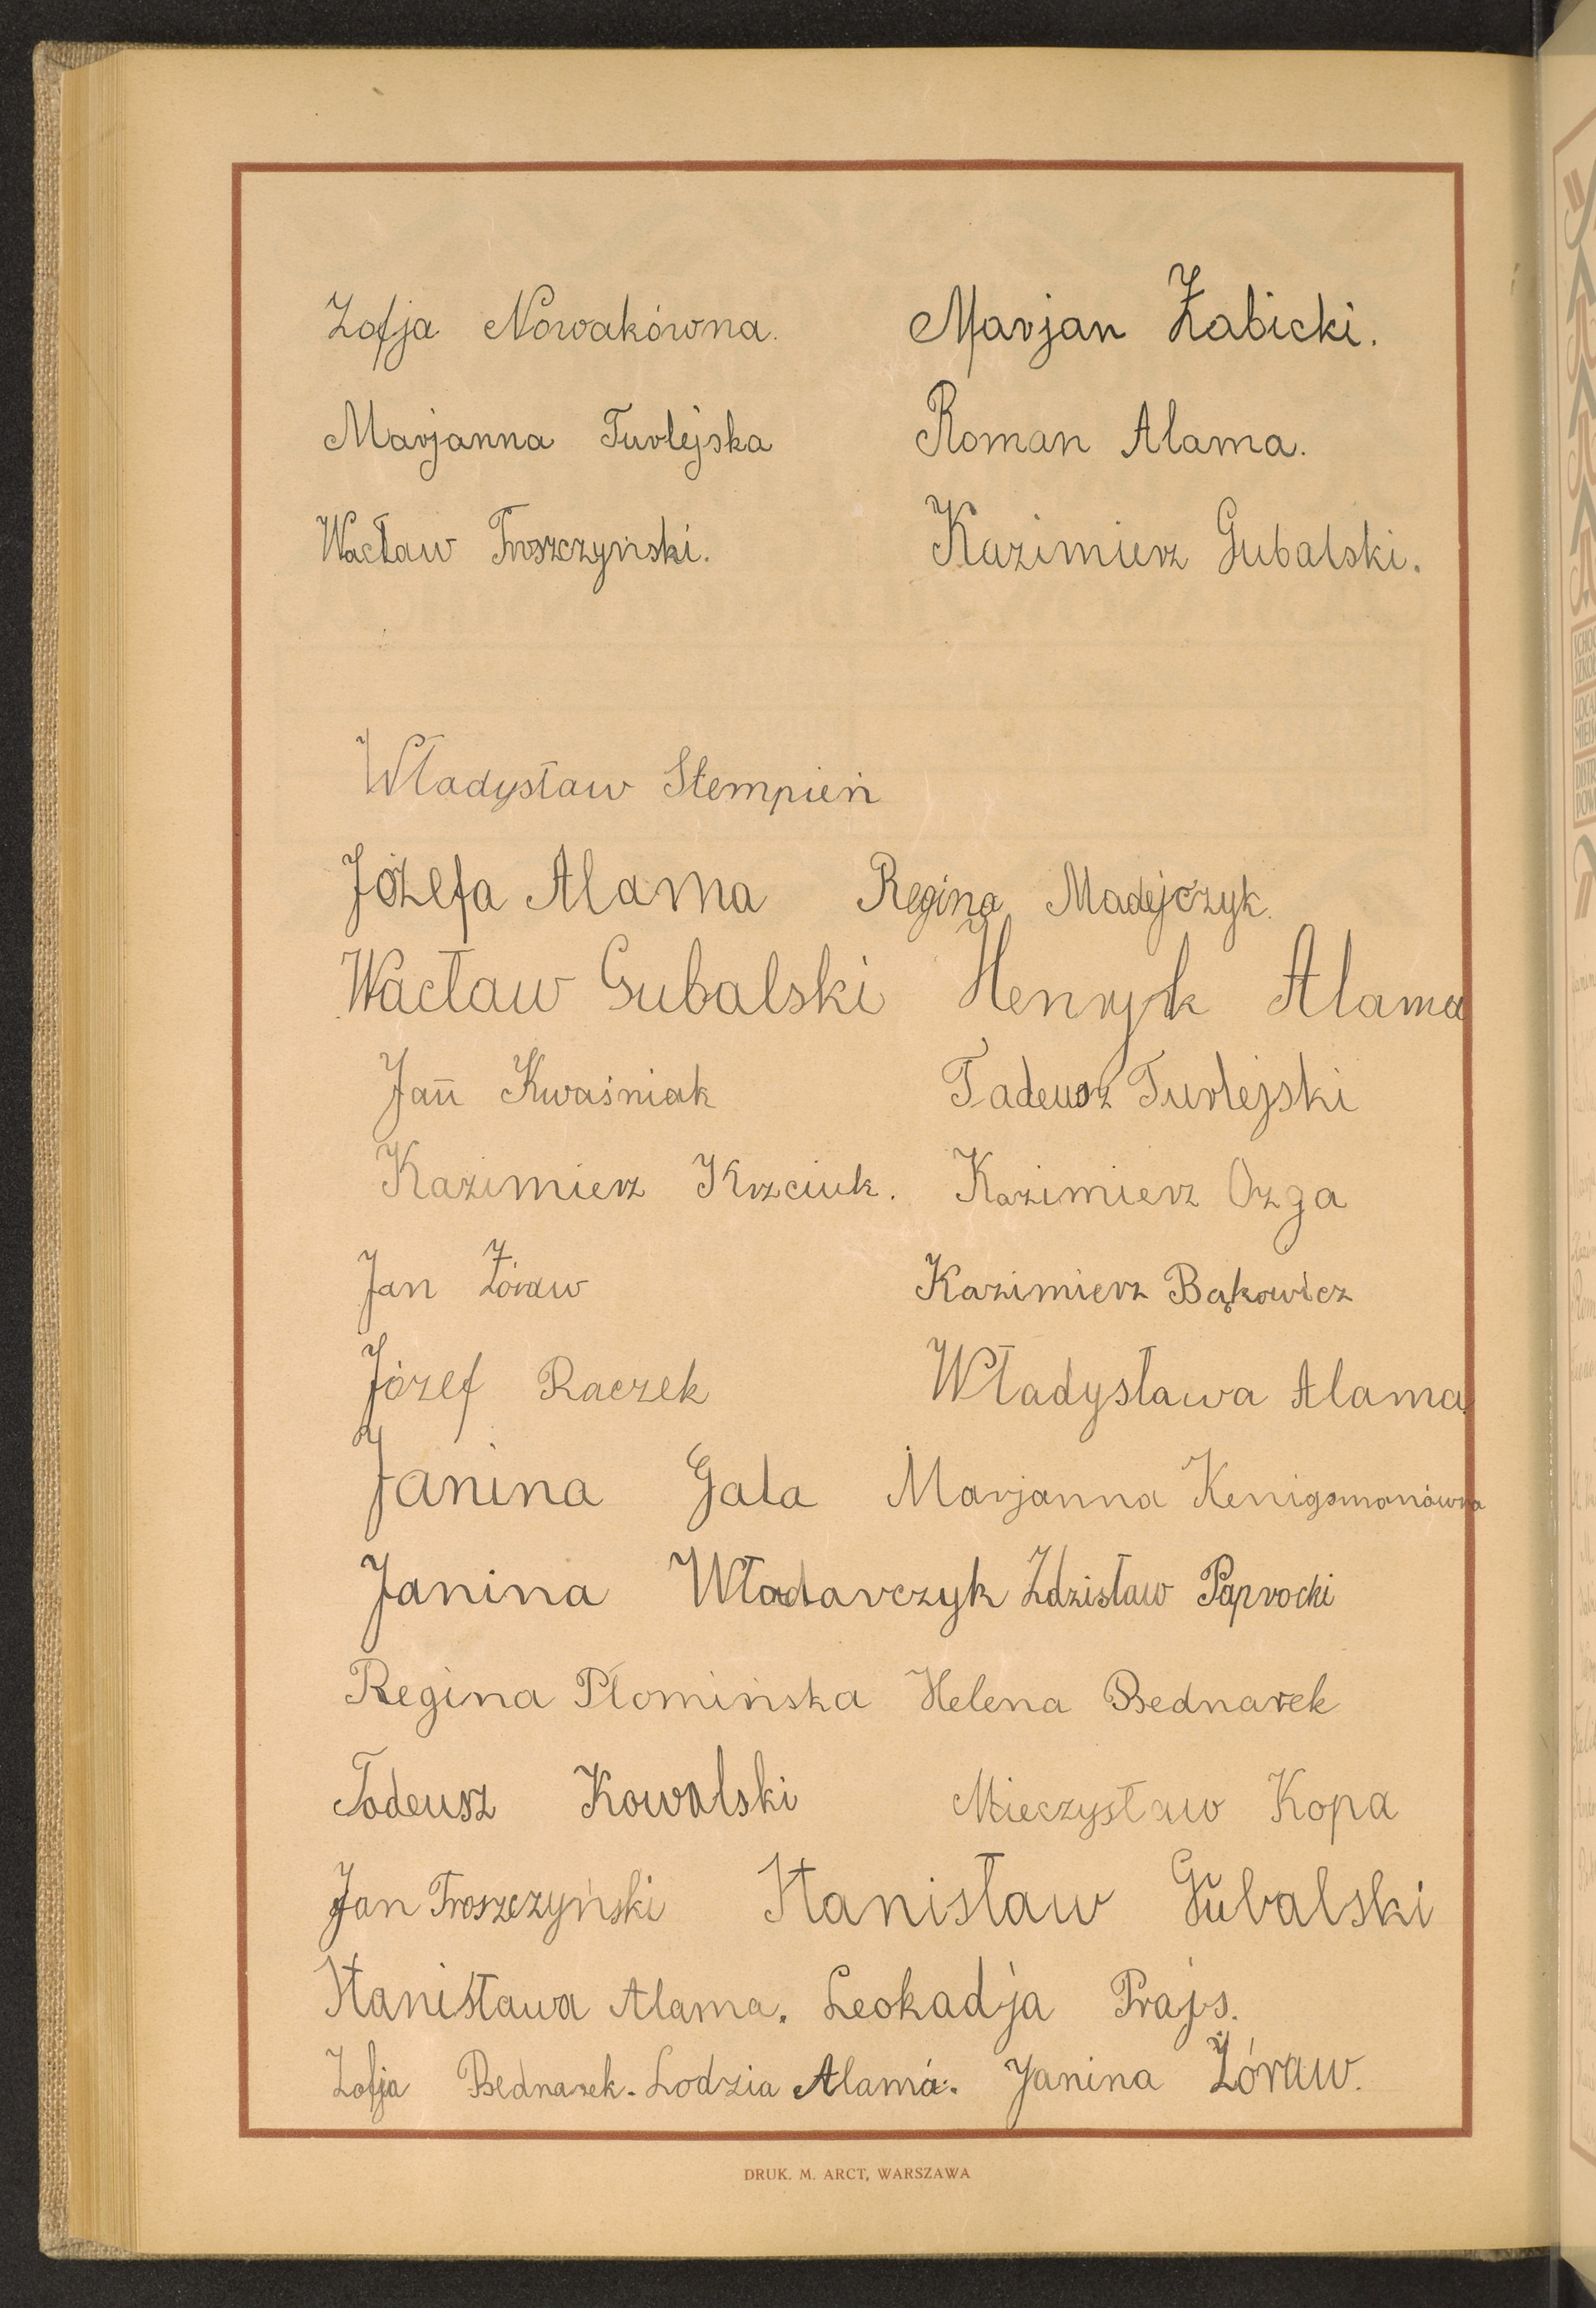 Zofja Nowakówna. Marjan Żabicki.
Marjanna Turlejska Roman Alama.
Wacław Troszczyński. Kazimierz Gubalski.
Władysław Stempień
Józefa Alama Regina Madejczyk.
Wacław Gubalski Henryk Alama
Jan Kwaśniak Tadeusz Turlejski
Kazimierz Krzciuk. Kazimierz Ozga
Jan Żóraw Kazimierz Bąkowicz
Józef Raczek Władysława Alama
Janina Gala Marjanna Kenigsmanówna
Janina Władarczyk Zdzisław Paprocki
Regina Płomińska Helena Bednarek
Tadeusz Kowalski Mieczysław Kopa
Jan Troszczyński Stanisław Gubalski
Stanisława Alama. Leokadja Prajs.
Zofja Bednarek. Lodzia Alama. Janina Żóraw.
DRUK. M. ARCT, WARSZAWA